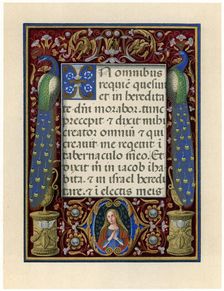 In omnibus
requiē quesiui
et in heredita
te dn̄i morabor. tunc
precepit et dixit mihi
creator omniū et qui
creauit me requieuit i
tabernaculo meo. Et
dixit mihi in iacob iha
bita. et in israel heredi
tare. et i electis meis